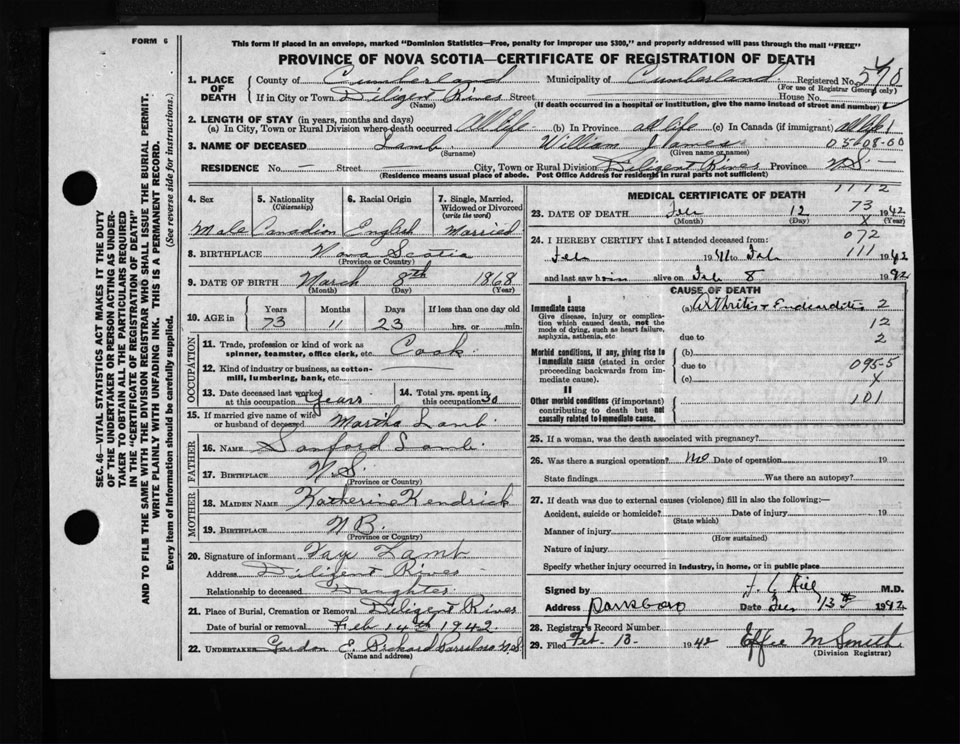 FORM 6
This form if placed in an envelope, marked "Dominion Statistics—Free, penalty for improper use $300," and properly addressed will pass through the mail "FREE"
PROVINCE OF NOVA SCOTIA—CERTIFICATE OF REGISTRATION OF DEATH
1. PLACE OF DEATH County of Cumberland Municipality of Cumberland Registered No. 570
(For use of Registrar General only)
If in City or Town Diligent River Street House No.
(Name) (If death occurred in a hospital or institution, give the name instead of street and number)
2. LENGTH OF STAY (in years, months and days)
(a) In City, Town or Rural Division where death occurred All life (b) In Province all life (c) In Canada (if immigrant) all life
3. NAME OF DECEASED Lamb William James 05608-00
(Surname) (Given name or names)
RESIDENCE No. — City, Town or Rural Division Diligent River Province N.S.—
(Residence means usual place of abode. Post Office Address for residents in rural parts not sufficient)
4. Sex 5. Nationality (Citizenship) 6. Racial Origin 7. Single, Married, Widowed or Divorced (write the word)
Male Canadian English Married
8. BIRTHPLACE Nova Scotia
(Province or Country)
9. DATE OF BIRTH March 8th 1868
(Month) (Day) (Year)
10. AGE in Years Months Days If less than one day old
73 11 23 hrs. or min.
OCCUPATION
11. Trade, profession or kind of work as spinner, teamster, office clerk, etc. Cook
12. Kind of industry or business, as cotton-mill, lumbering, bank, etc.
13. Date deceased last worked at this occupation years 14. Total yrs. spent in this occupation 30
15. If married give name of wife or husband of deceased Martha Lamb
FATHER
16. NAME Sanford Lamb
17. BIRTHPLACE N.S.
(Province or Country)
MOTHER
18. MAIDEN NAME Katherine Kendrick
19. BIRTHPLACE N B.
(Province or Country)
20. Signature of informant Faye Lamb
Address Diligent River
Relationship to deceased Daughter
21. Place of Burial, Cremation or Removal Diligent River
Date of burial or removal Feb 14th 1942
22. UNDERTAKER Gordon E. Pickard Parrsboro N.S.
(Name and address)
1112
MEDICAL CERTIFICATE OF DEATH
73
23. DATE OF DEATH Feb 12 1942
(Month) (Day) X (Year)
072
24. I HEREBY CERTIFY that I attended deceased from:
111
Feb 1941 to Feb 1942
and last saw him alive on Feb 8 1942
CAUSE OF DEATH
I
Immediate cause
Give disease, injury or complication which caused death, not the mode of dying, such as heart failure, asphyxia, asthenia, etc
(a) Arthritis + Endocarditis 2
12
due to 2
Morbid conditions, if any, giving rise to immediate cause (stated in order proceeding backwards from immediate cause).
(b)
due to 095-5
(c) X
II
Other morbid conditions (if important) contributing to death but not causally related to immediate cause.
101
25. If a woman, was the death associated with pregnancy?
26. Was there a surgical operation? No Date of operation 19
State findings Was there an autopsy?
27. If death was due to external causes (violence) fill in also the following:—
Accident, suicide or homicide? Date of injury 19
(State which)
Manner of injury
(How sustained)
Nature of injury
Specify whether injury occurred in industry, in home, or in public place
Signed by F. G. Hill M.D.
Address Parrsboro Date Feb 13th 1942
28. Registrar's Record Number
29. Filed Feb. 13 1942 Effie M Smith
(Division Registrar)
SEC. 46—VITAL STATISTICS ACT MAKES IT THE DUTY
OF THE UNDERTAKER OR PERSON ACTING AS UNDER-
TAKER TO OBTAIN ALL THE PARTICULARS REQUIRED
IN THE "CERTIFICATE OF REGISTRATION OF DEATH"
AND TO FILE THE SAME WITH THE DIVISION REGISTRAR WHO SHALL ISSUE THE BURIAL PERMIT.
WRITE PLAINLY WITH UNFADING INK. THIS IS A PERMANENT RECORD.
Every item of Information should be carefully supplied. (See reverse side for instructions.)